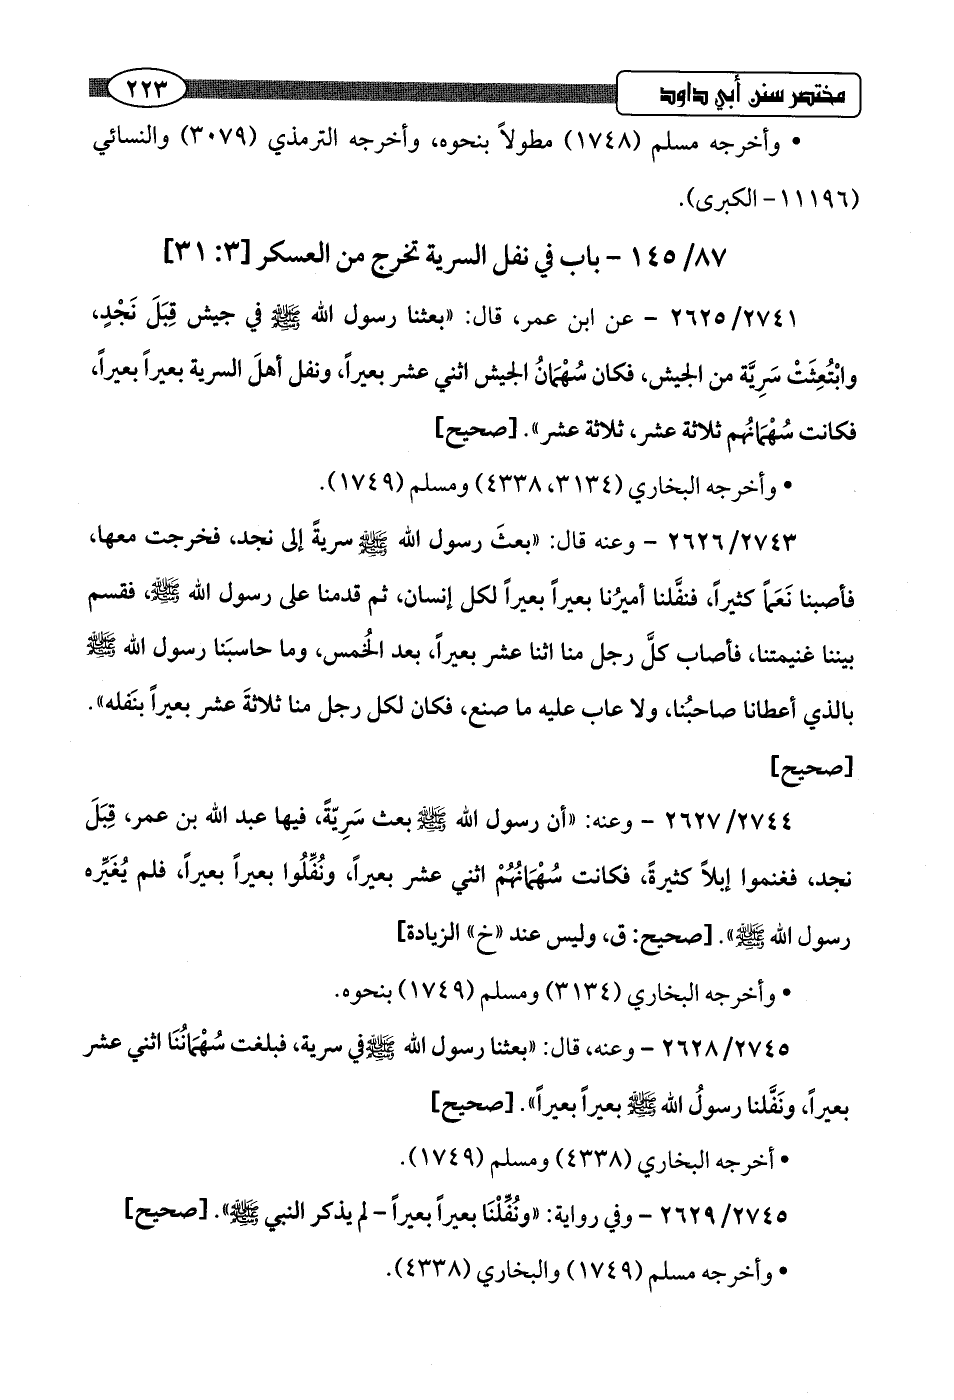 مختصر سنن أبي داود ٢٢٣
• وأخرجه مسلم (١٧٤٨) مطولاً بنحوه، وأخرجه الترمذي (٣٠٧٩) والنسائي
(١١١٩٦- الكبرى).
٨٧/ ١٤٥ - باب في نفل السرية تخرج من العسكر [٣: ٣١]
٢٦٢٥/٢٧٤١ - عن ابن عمر، قال: «بعثنا رسول الله ﷺ في جيش قِبَلَ نَجْدٍ،
وابْتُعِثَتْ سَرِيَّة من الجيش، فكان سُهْمَانُ الجيش اثني عشر بعيراً، ونفل أهلَ السرية بعيراً بعيراً،
فكانت سُهْمَانُهم ثلاثة عشر، ثلاثة عشر». [صحيح]
• وأخرجه البخاري (٣١٣٤، ٤٣٣٨) ومسلم (١٧٤٩).
٢٦٢٦/٢٧٤٣ - وعنه قال: «بعثَ رسول الله ﷺ سريةً إلى نجد، فخرجت معها،
فأصبنا نَعَماً كثيراً، فنفَّلنا أميرُنا بعيراً بعيراً لكل إنسان، ثم قدمنا على رسول الله ﷺ، فقسم
بيننا غنيمتنا، فأصاب كلَّ رجل منا اثنا عشر بعيراً، بعد الخُمس، وما حاسبَنا رسول الله ﷺ
بالذي أعطانا صاحبُنا، ولا عاب عليه ما صنع، فكان لكل رجل منا ثلاثةَ عشر بعيراً بنَفله».
[صحيح]
٢٦٢٧/٢٧٤٤ - وعنه: «أن رسول الله ﷺ بعث سَرِيّةً، فيها عبد الله بن عمر، قِبَلَ
نجد، فغنموا إبلاً كثيرةً، فكانت سُهْمَانُهُمْ اثني عشر بعيراً، ونُفِّلُوا بعيراً بعيراً، فلم يُغَيِّره
رسول الله ﷺ». [صحيح: ق، وليس عند «خ» الزيادة]
• وأخرجه البخاري (٣١٣٤) ومسلم (١٧٤٩) بنحوه.
٢٦٢٨/٢٧٤٥ - وعنه، قال: «بعثنا رسول الله ﷺ في سرية، فبلغت سُهْمَانُنَا اثني عشر
بعيراً، ونَفَّلنا رسولُ الله ﷺ بعيراً بعيراً». [صحيح]
• أخرجه البخاري (٤٣٣٨) ومسلم (١٧٤٩).
٢٦٢٩/٢٧٤٥ - وفي رواية: «ونُفِّلْنَا بعيراً بعيراً - لم يذكر النبي ﷺ». [صحيح]
• وأخرجه مسلم (١٧٤٩) والبخاري (٤٣٣٨).